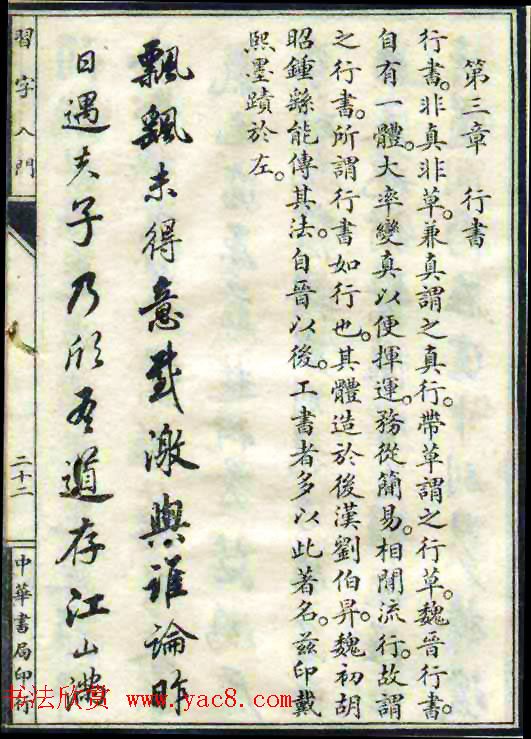 第三章 行書
行書。非真非草。兼真謂之真行。帶草謂之行草。魏晉行書。
自有一體。大率變真以便揮運。務從簡易。相間流行。故謂
之行書。所謂行書如行也。其體造於後漢劉伯昇。魏初胡
昭鍾繇能傳其法。自晉以後。工書者多以此著名。茲印戴
熙墨蹟於左。
飄飄未得意感激與誰論昨
日遇夫子乃欣吾道存江山滿
習字入門
二十二
中華書局印行
书法欣赏 www.yac8.com